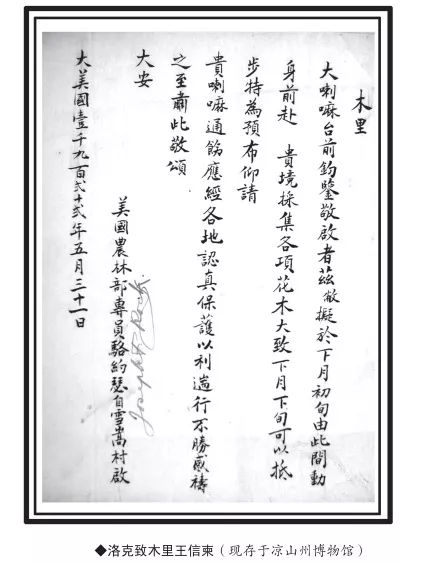 木里
大喇嘛台前鈞鑒敬啟者茲敝擬於下月初旬由此間動
身前赴 貴境採集各項花木大致下月下旬可以抵
步特為預布仰請
貴喇嘛通飭應經各地認真保護以利遄行不勝感禱
之至肅此敬頌
大安
美國農林部專員駱約瑟自雪嵩村啟
Joseph F. Rock.
大美國壹千九百貳十貳年五月三十一日
◆洛克致木里王信柬（现存于凉山州博物馆）